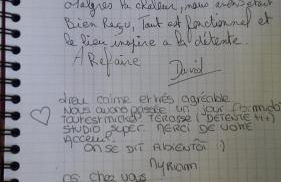 malgrés la chaleur, nous avons était
Bien Reçu, Tout est fonctionnel et
le lieu inspire a la détente.
A Refaire
David
Lieu calme et très agréable
Nous avons passée un jour formida
tourestmicko TERASSE (DETENTE ++)
STUDIO SUPER. MERCI DE VOTRE
ACCEUIL.
ON SE DIT ABIENTOT :)
MYRIAM
Chez vous